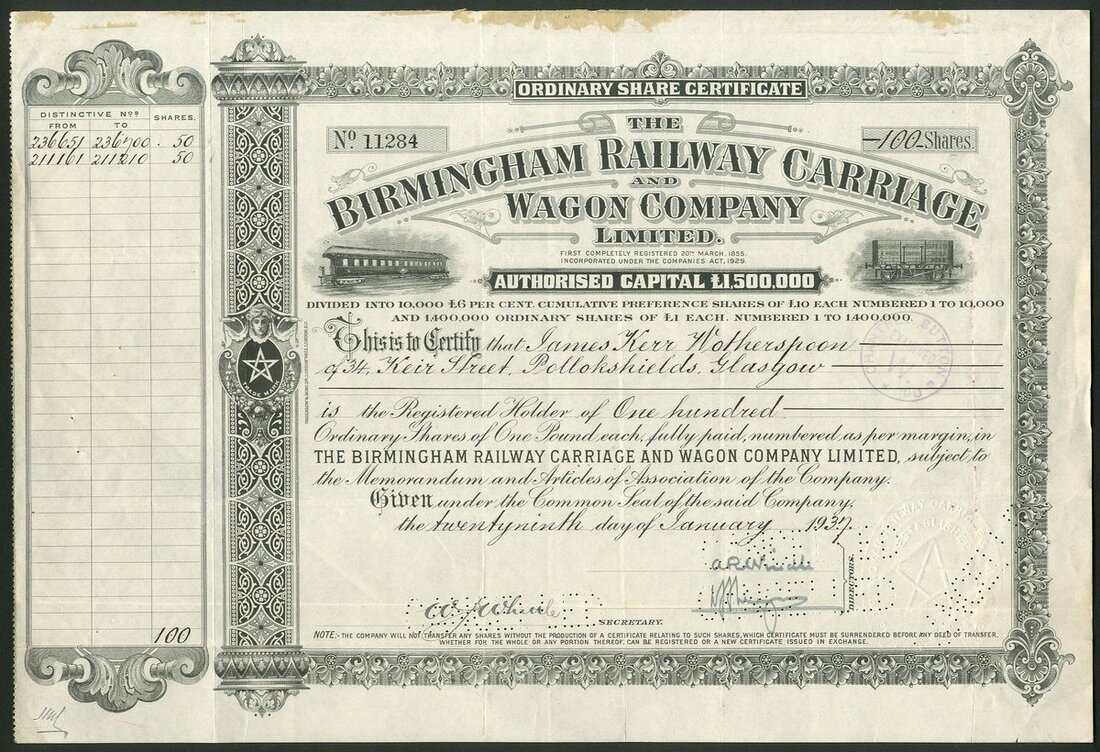 ORDINARY SHARE CERTIFICATE
DISTINCTIVE Nos. SHARES.
FROM TO
236651 236700 50
211161 211210 50
100
No 11284
-100- Shares.
THE
BIRMINGHAM RAILWAY CARRIAGE
AND
WAGON COMPANY
LIMITED.
FIRST COMPLETELY REGISTERED 20TH MARCH, 1855.
INCORPORATED UNDER THE COMPANIES ACT, 1929.
AUTHORISED CAPITAL £1,500,000
DIVIDED INTO 10,000 £6 PER CENT. CUMULATIVE PREFERENCE SHARES OF £10 EACH NUMBERED 1 TO 10,000
AND 1400,000 ORDINARY SHARES OF £1 EACH. NUMBERED 1 TO 1400,000.
This is to Certify that James Kerr Wotherspoon
of 34, Keir Street, Pollokshields, Glasgow
is the Registered Holder of One hundred
Ordinary Shares of One Pound each, fully paid, numbered as per margin, in
THE BIRMINGHAM RAILWAY CARRIAGE AND WAGON COMPANY LIMITED, subject to
the Memorandum and Articles of Association of the Company.
Given under the Common Seal of the said Company,
the twentyninth day of January 1937.
DIRECTORS.
SECRETARY.
NOTE:- THE COMPANY WILL NOT TRANSFER ANY SHARES WITHOUT THE PRODUCTION OF A CERTIFICATE RELATING TO SUCH SHARES, WHICH CERTIFICATE MUST BE SURRENDERED BEFORE ANY DEED OF TRANSFER,
WHETHER FOR THE WHOLE OR ANY PORTION THEREOF, CAN BE REGISTERED OR A NEW CERTIFICATE ISSUED IN EXCHANGE.
TRADE MARK